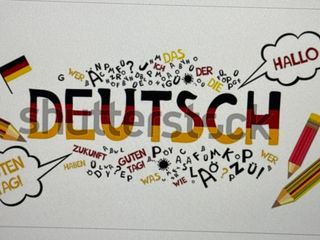 DAS
WER
ICH
DER
DIE
HALLO
DEUTSCH
shutterstock
ZUKUNFT
HABEN
GUTEN
TAG!
WAS
WIE
WER
TEN
TAG!